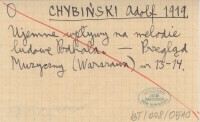 CHYBIŃSKI Adolf 1919.
Ujemne wpływy na melodie
ludowe Podhala. — Przegląd
Muzyczny (Warszawa) nr 13-14.